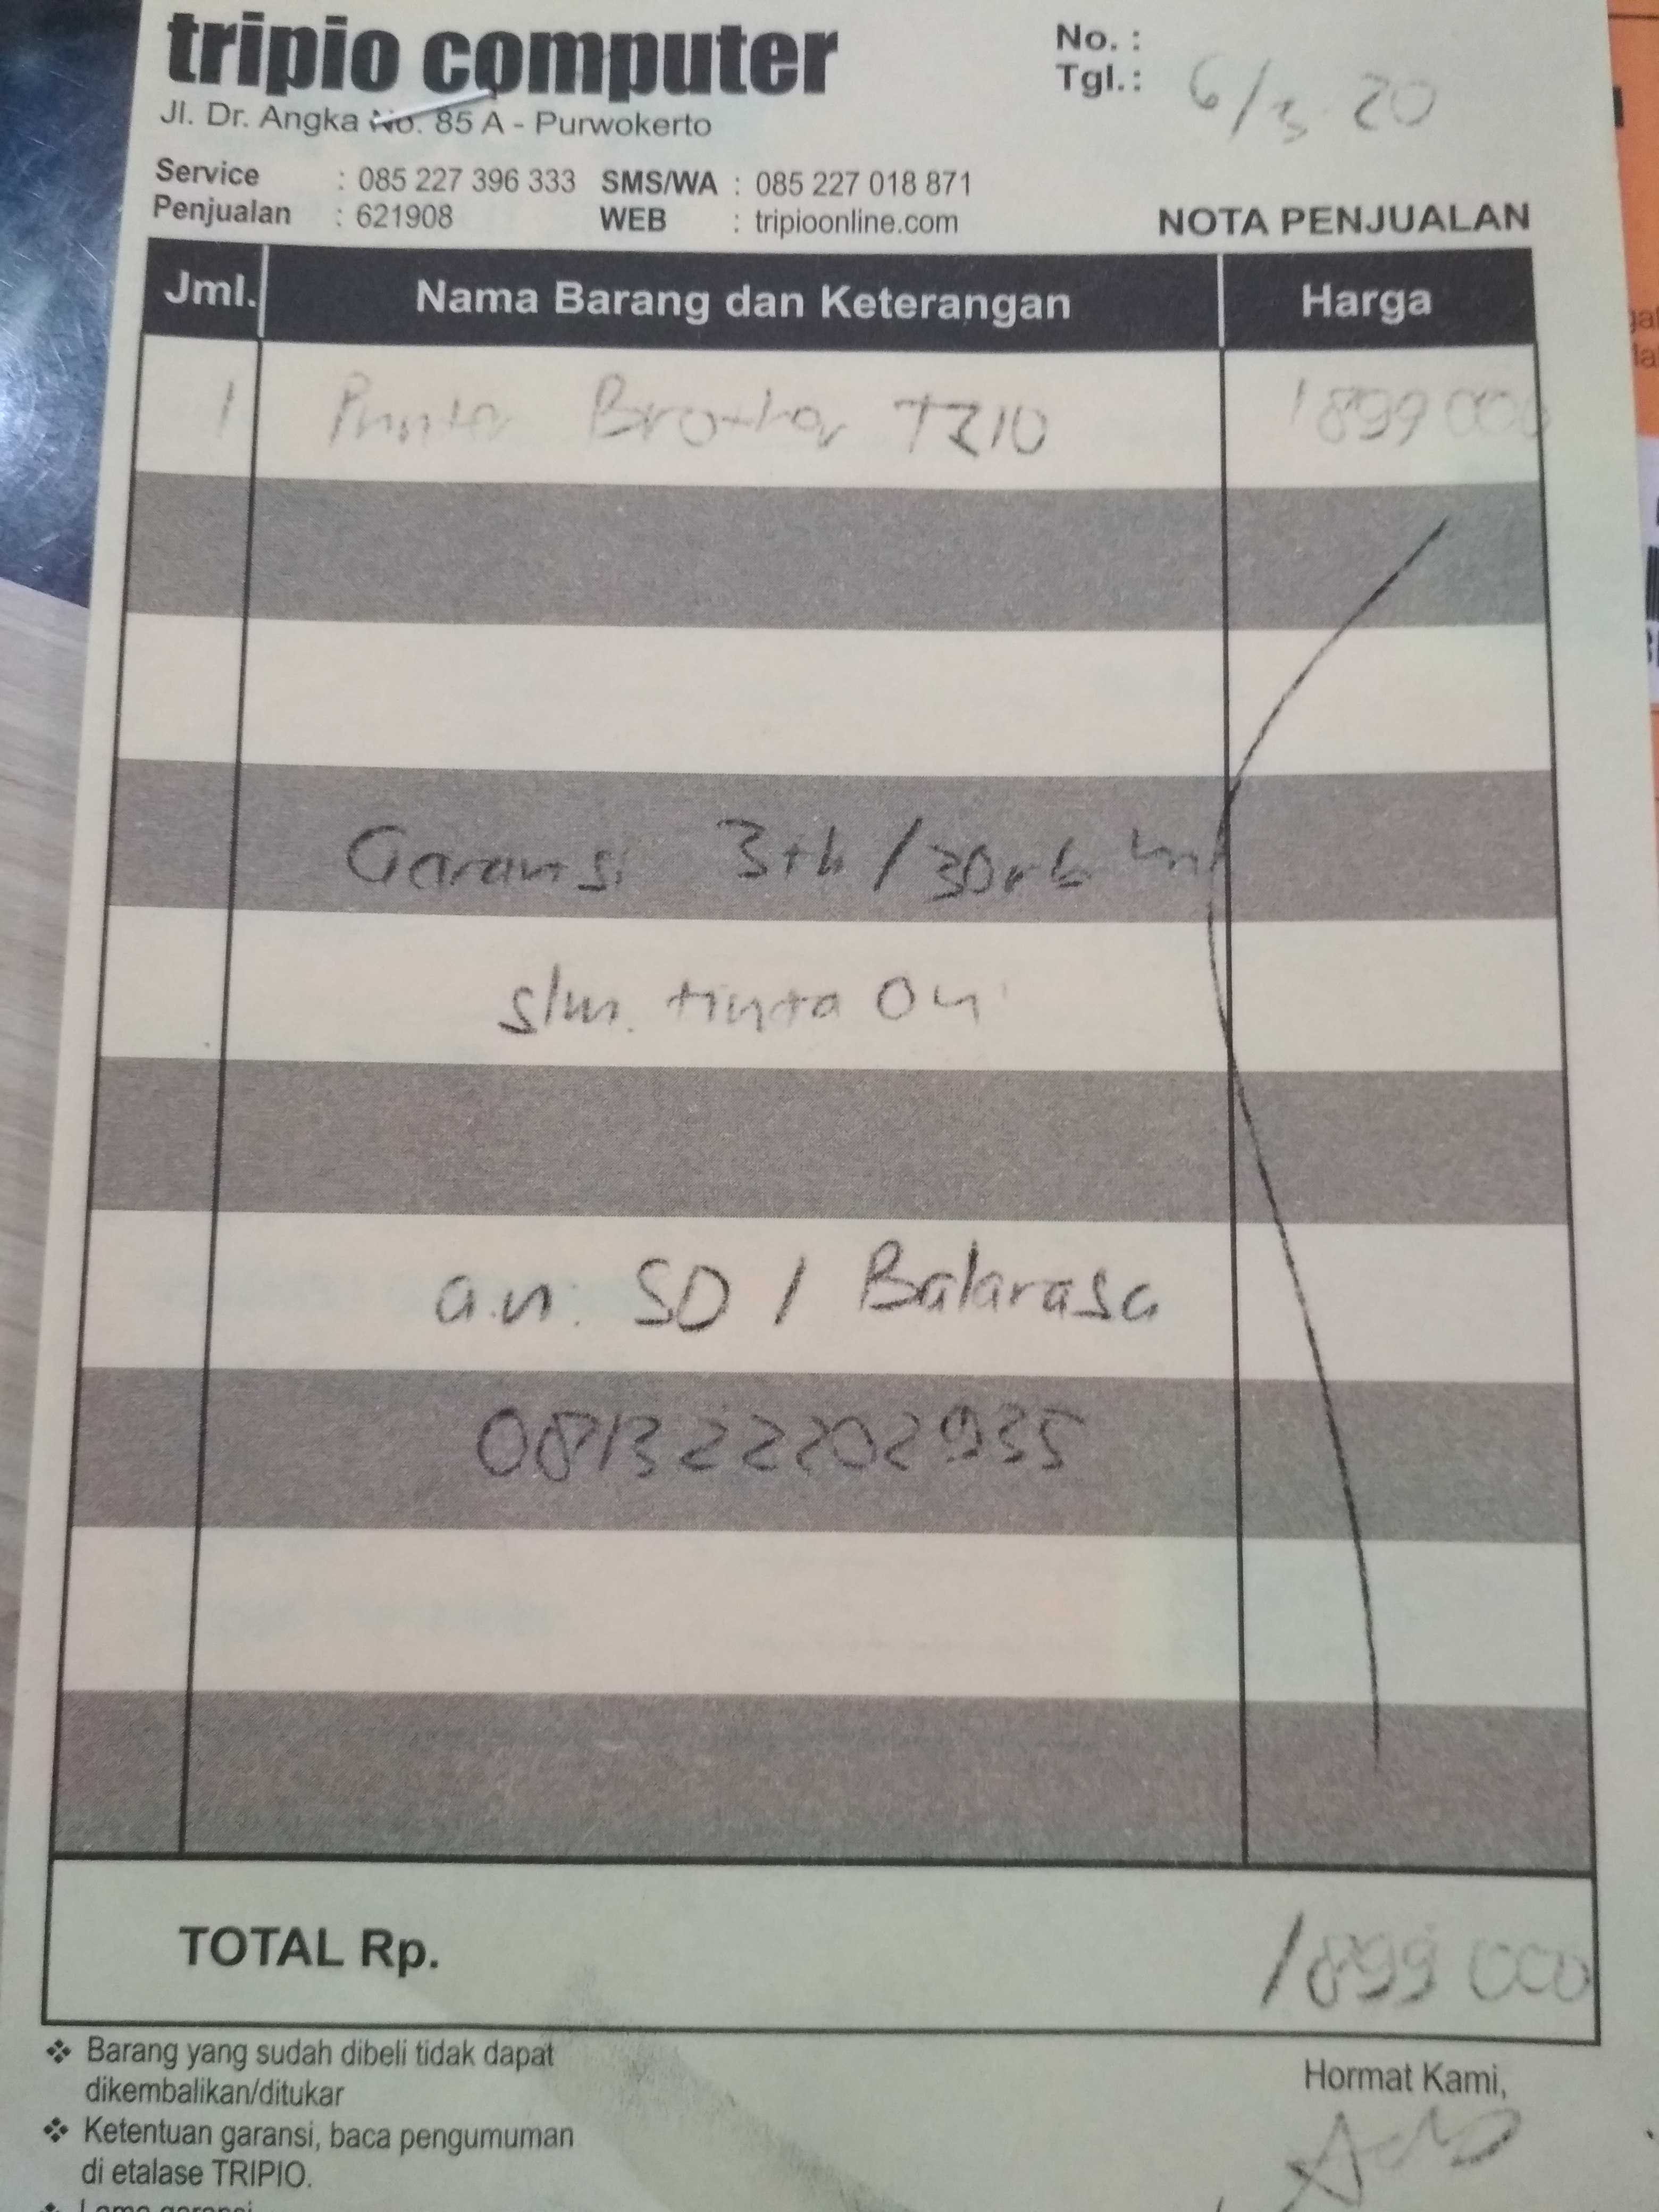 tripio computer
Jl. Dr. Angka No. 85 A - Purwokerto
No. :
Tgl.: 6/3 20
Service : 085 227 396 333 SMS/WA : 085 227 018 871
Penjualan : 621908 WEB : tripioonline.com
NOTA PENJUALAN
Jml. Nama Barang dan Keterangan Harga
1 Printer Brother T310 1899 000
Garansi 3th/30rb
slm. tinta Ori
a.n. SD 1 Balarasa
081322202935
TOTAL Rp. 1899 000
❖ Barang yang sudah dibeli tidak dapat
dikembalikan/ditukar
❖ Ketentuan garansi, baca pengumuman
di etalase TRIPIO.
Hormat Kami,